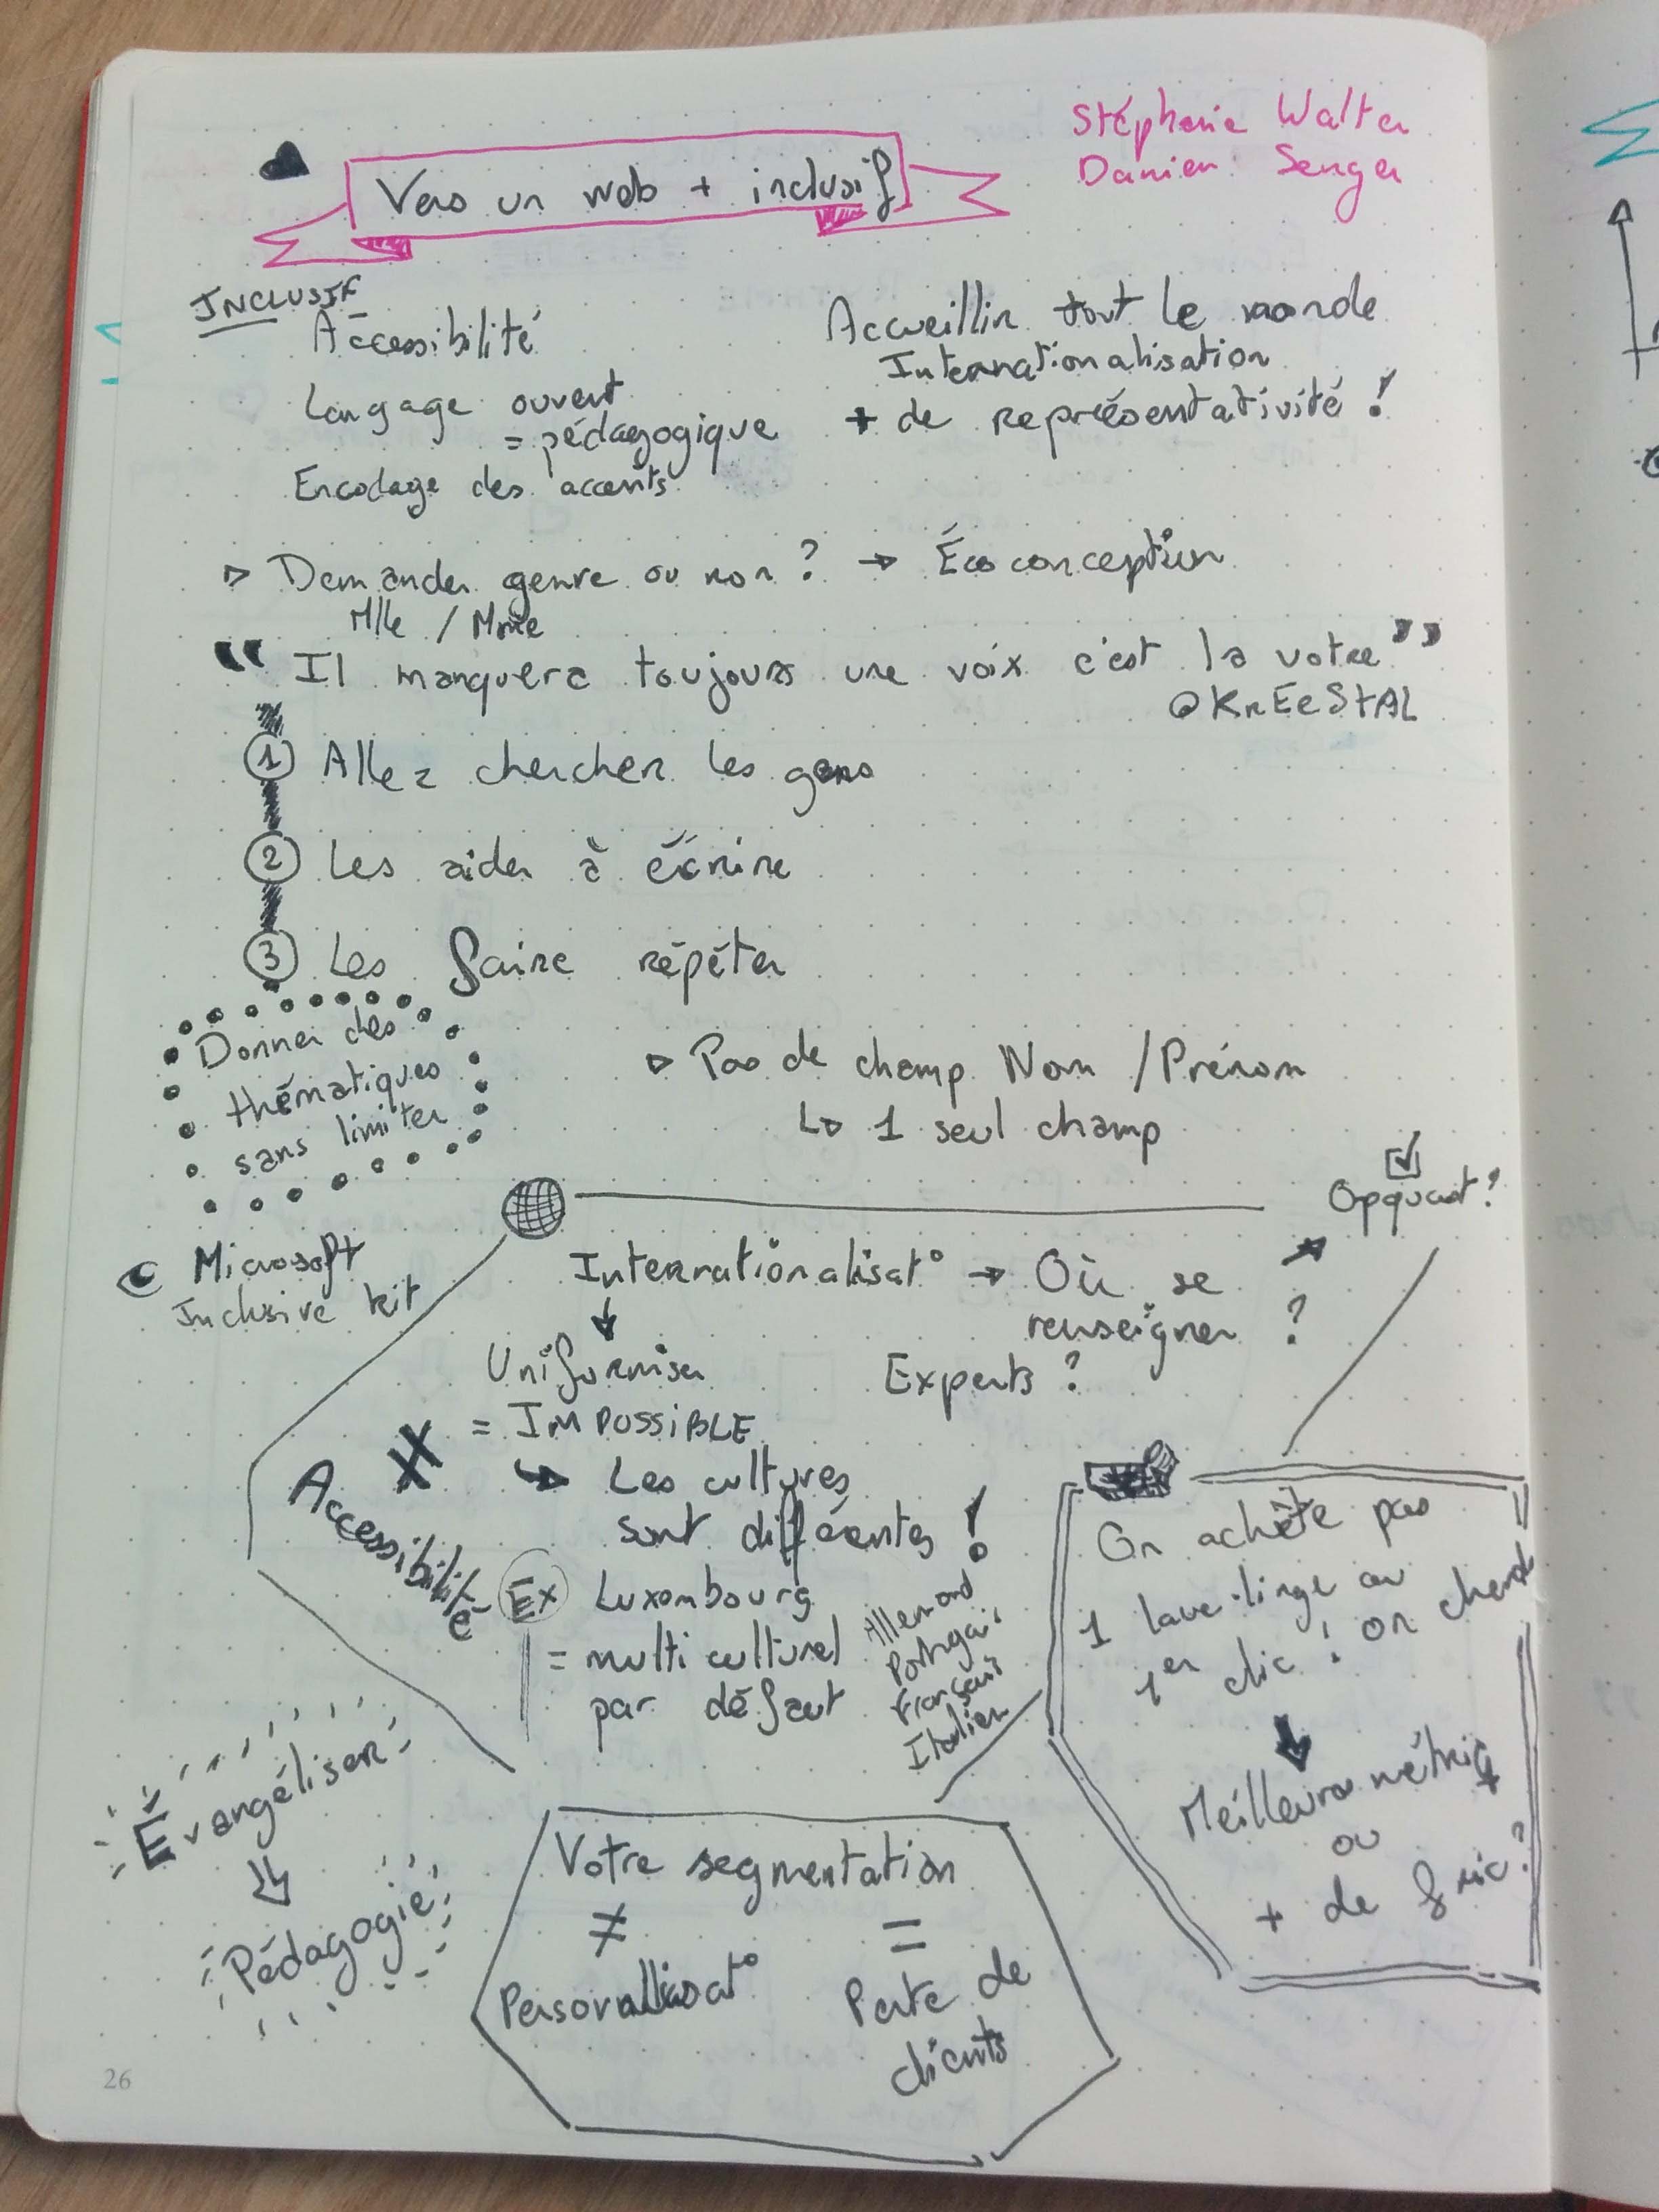 Stéphanie Walter
Damien Senger
Vers un web + inclusif
INCLUSIF
Accessibilité
Langage ouvert
= pédagogique
Encodage des accents
Accueillir tout le monde
Internationalisation
+ de représentativité !
▷ Demander genre ou non ? → Écoconception
Mlle / Mme
“ Il manquera toujours une voix c'est la votre ”
@KrEeStAL
1 Allez chercher les gens
2 Les aider à écrire
3 Les faire répéter
Donner des
thématiques
sans limiter
▷ Pas de champ Nom / Prénom
↳ 1 seul champ
Microsoft
Inclusive kit
Internationalisat° → Où se
renseigner ?
→ Opquast ?
Experts ?
↓
Uniformiser
= IMPOSSiBLE
↳ Les cultures
sont différentes !
≠
Accessibilité
Ex Luxembourg
= multi culturel
par défaut
Allemand
Portugais
Français
Italien
On achète pas
1 lave-linge au
1er clic ! on cherche
↓
Meilleures métriq
ou
+ de fric ?
Évangéliser
↓
Pédagogie
Votre segmentation
≠ =
Personalisat°
Perte de
clients
26